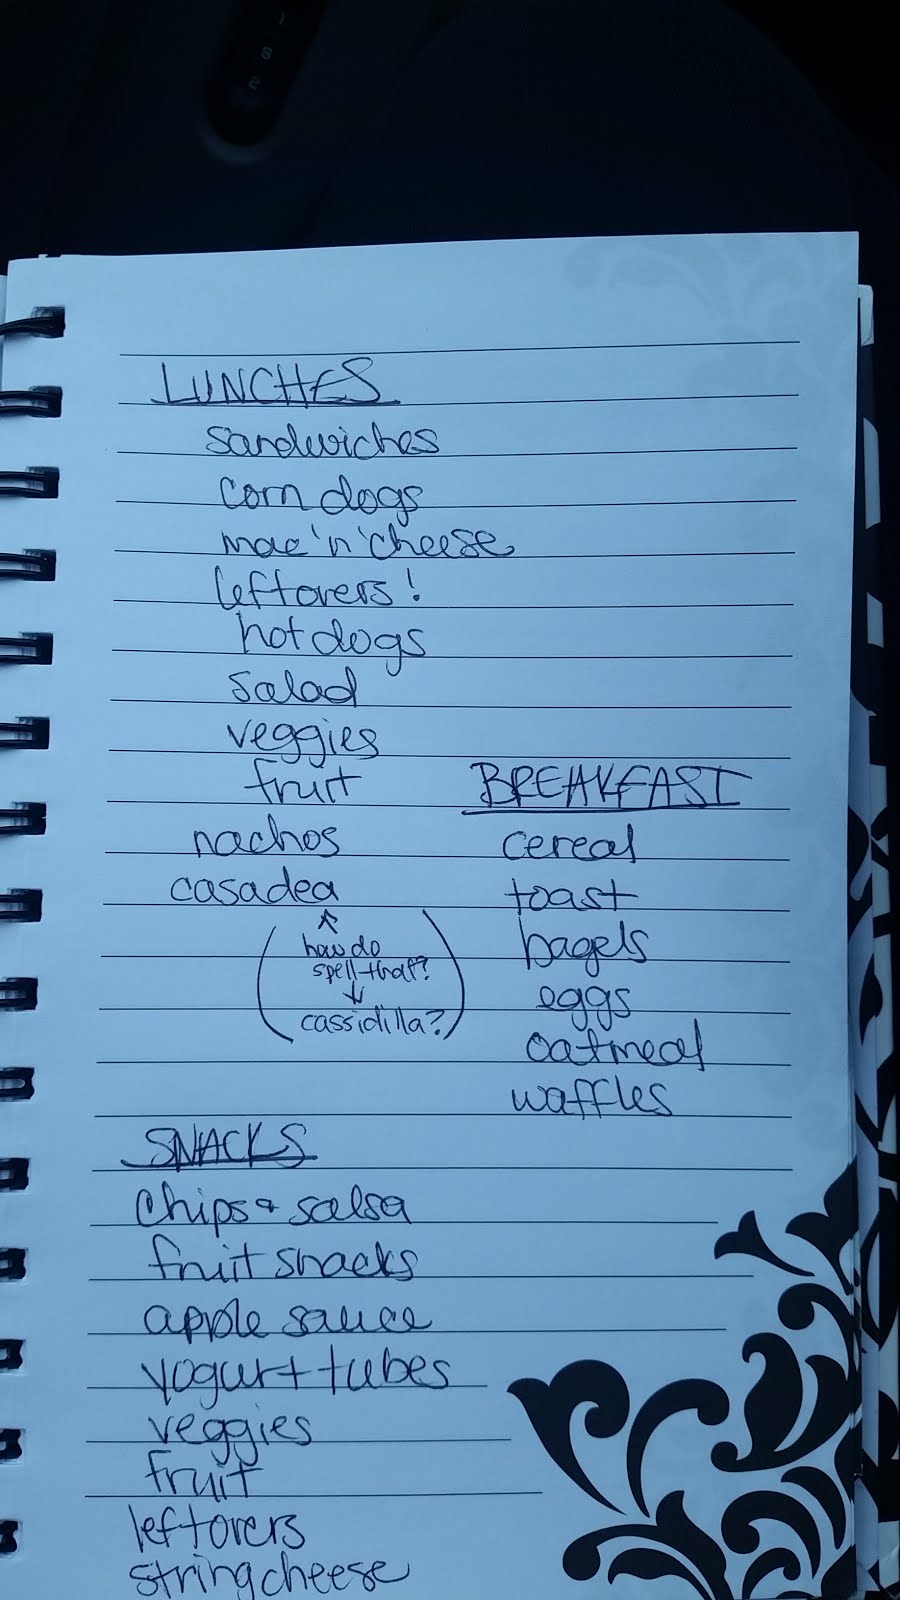 LUNCHES
sandwiches
corn dogs
mac 'n' cheese
leftovers!
hot dogs
salad
veggies
fruit
nachos
casadea
how do
spell that?
cassidilla?
BREAKFAST
cereal
toast
bagels
eggs
oatmeal
waffles
SNACKS
chips & salsa
fruit snacks
apple sauce
yogurt tubes
veggies
fruit
leftovers
string cheese